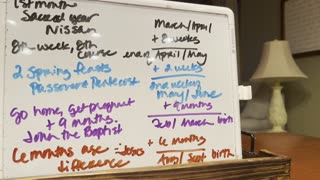 1st month
Sacred year
Nissan
March/April
+ 8 weeks
8th week, 8th
Course
April/May
2 Spring feasts
Passover & Pentecost
+ 2 weeks
May/June
go home, get pregnant
+ 9 months.
John the Baptist
+ 9 months
Feb/March birth
6 months age Jesus
difference
+ 6 months
Aug/Sept birth